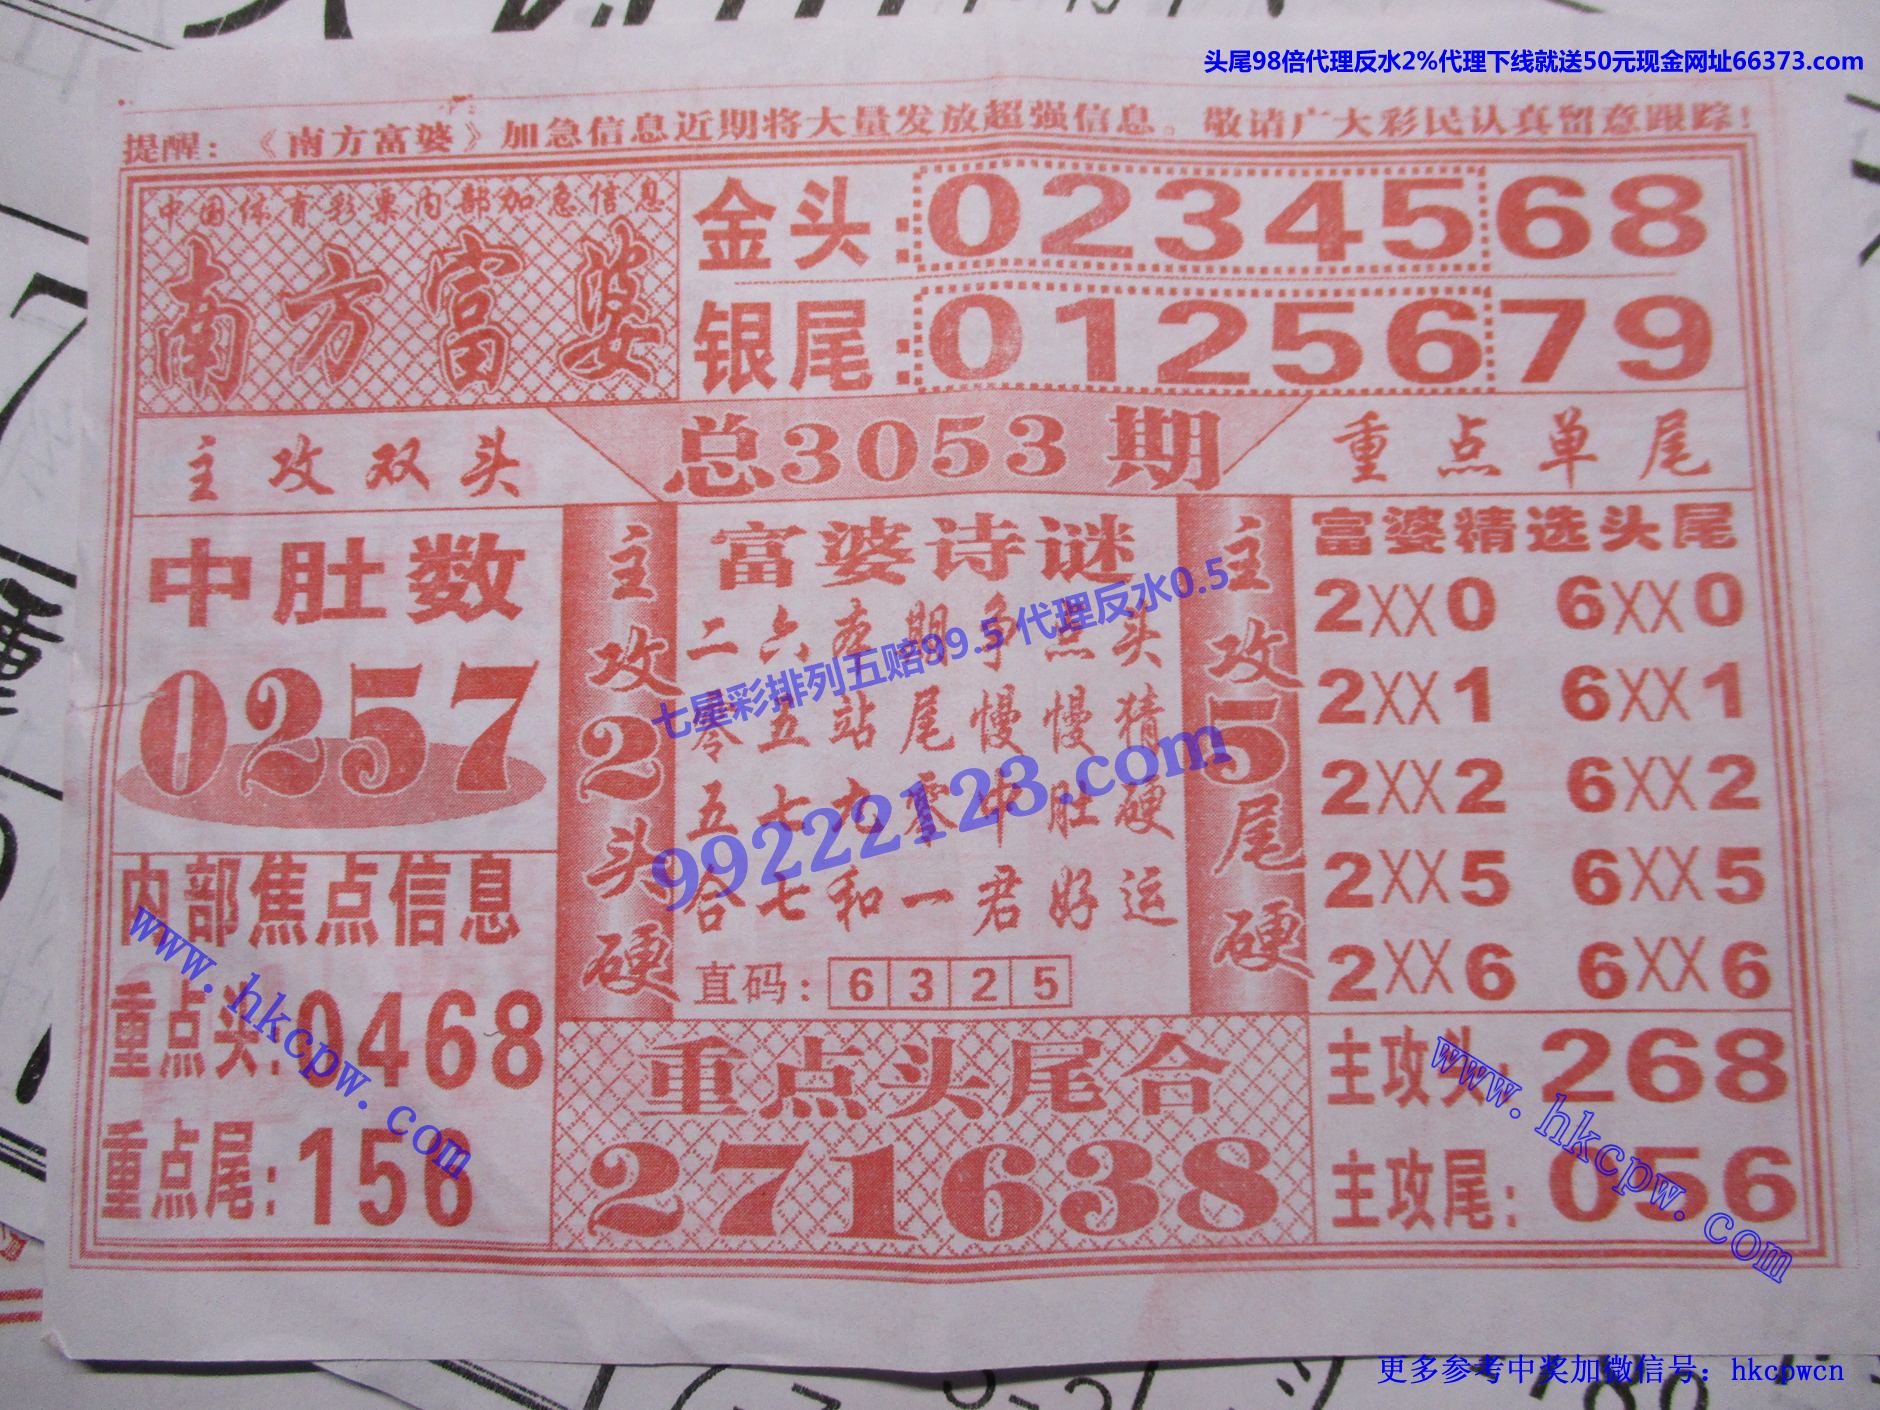 头尾98倍代理反水2%代理下线就送50元现金网址66373.com
提醒：《南方富婆》加急信息近期将大量发放超强信息。敬请广大彩民认真留意跟踪！
中国体育彩票内部加急信息
南方富婆
金头：0234568
银尾：0125679
主攻双头
总3053期
重点单尾
中肚数
0257
内部焦点信息
重点头：0468
重点尾：156
主攻2头硬
富婆诗谜
二六态期争点头
零五站尾慢慢猜
五七九零中肚硬
合七和一君好运
直码：6325
主攻5尾硬
重点头尾合
271638
富婆精选头尾
2XX0 6XX0
2XX1 6XX1
2XX2 6XX2
2XX5 6XX5
2XX6 6XX6
主攻头：268
主攻尾：056
七星彩排列五赔99.5 代理反水0.5
99222123.com
www.hkcpw.com
www.hkcpw.com
更多参考中奖加微信号：hkcpwcn